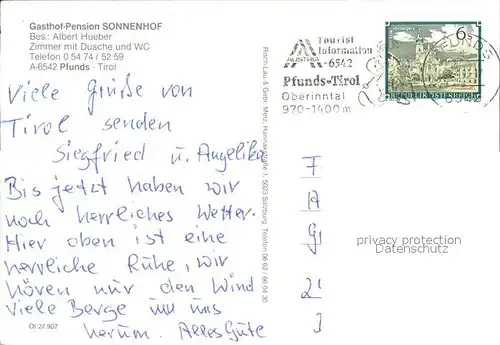 Gasthof-Pension SONNENHOF
Bes.: Albert Hueber
Zimmer mit Dusche und WC
Telefon 0 54 74 / 52 59
A-6542 Pfunds - Tirol
Viele Grüße von
Tirol senden
Siegfried u. Angelika
Bis jetzt haben wir
noch herrliches Wetter.
Hier oben ist eine
herrliche Ruhe, wir
hören nur den Wind
viele Berge um uns
herum. Alles Gute
DI 27.907
Tourist
Information
AUSTRIA -6542
Pfunds-Tirol
Oberinntal
970-1400m
6
REPUBLIK ÖSTERREICH
PFUNDS
6542
F
A
privacy protection
Datenschutz